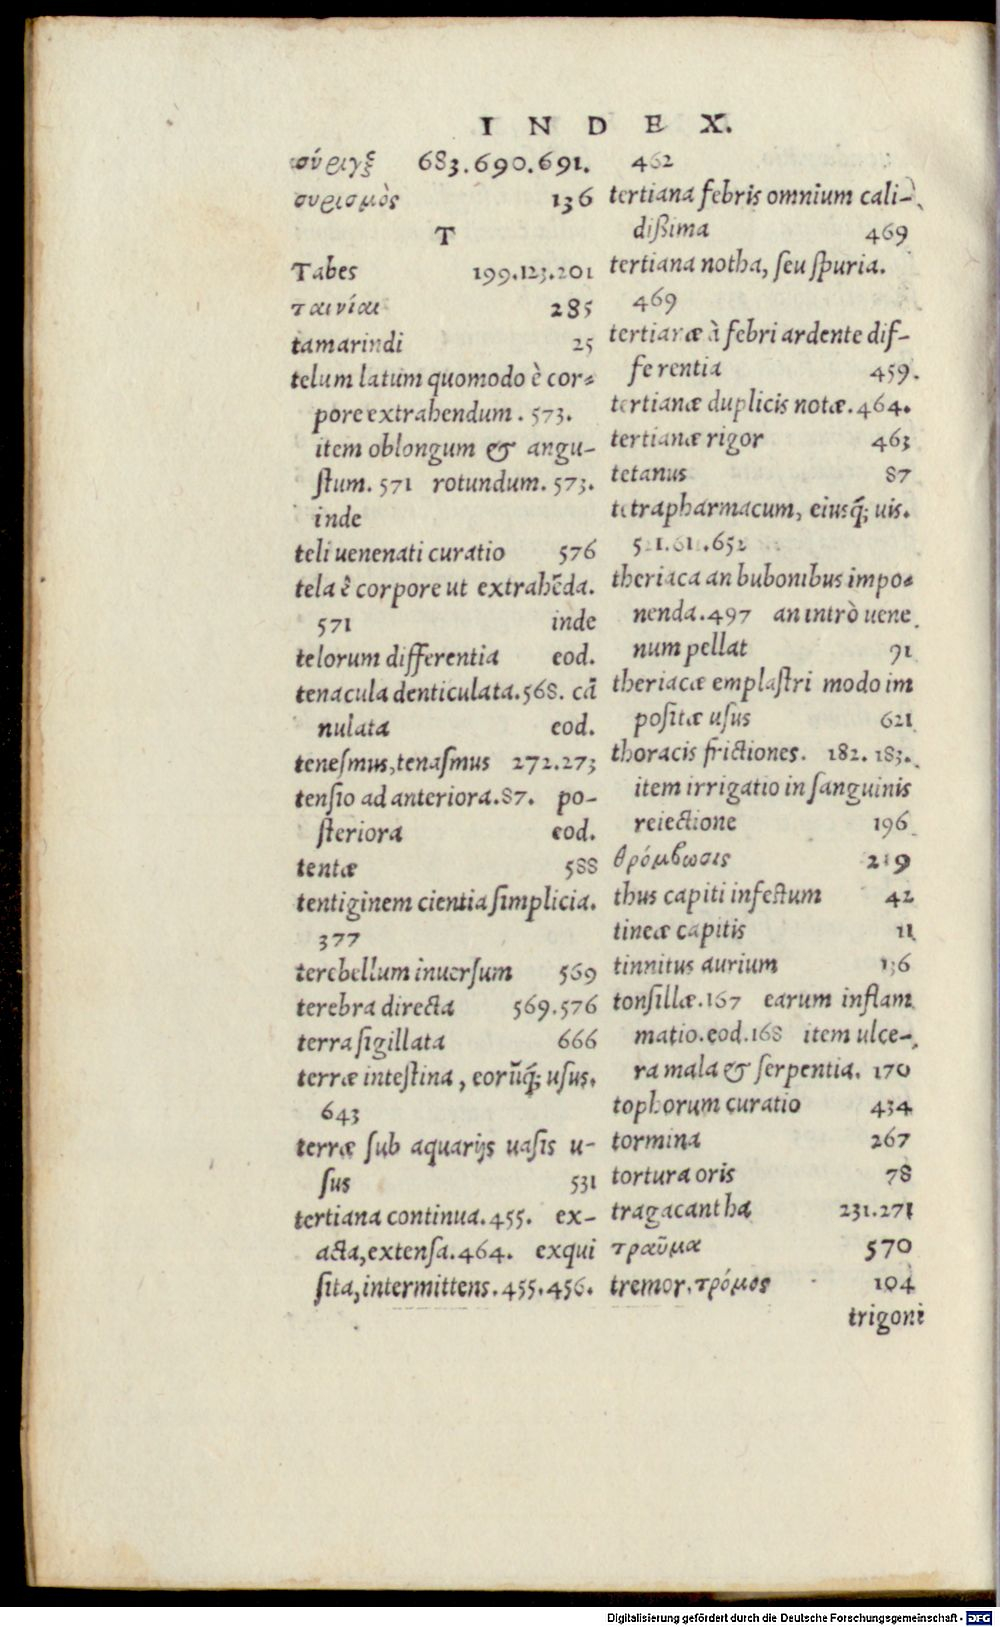 INDEX.
σύριγξ 683.690.691.
συρισμὸς 136
T
Tabes 199.123.201
ταινίαι 285
tamarindi 25
telum latum quomodo è cor-
pore extrahendum. 573.
item oblongum & angu-
ſtum. 571 rotundum. 573.
inde
teli uenenati curatio 576
tela è corpore ut extrahēda.
571 inde
telorum differentia eod.
tenacula denticulata. 568. cā
nulata eod.
teneſmus, tenaſmus 272.273
tenſio ad anteriora. 87. po-
ſteriora eod.
tentæ 588
tentiginem cientia ſimplicia.
377
terebellum inuerſum 569
terebra directa 569.576
terra ſigillata 666
terræ inteſtina, eorūq́; uſus.
643
terræ ſub aquarijs uaſis u-
ſus 531
tertiana continua. 455. ex-
acta, extenſa. 464. exqui
ſita, intermittens. 455.456.
462
tertiana febris omnium cali-
dißima 469
tertiana notha, ſeu ſpuria.
469
tertianæ à febri ardente dif-
ferentia 459.
tertianæ duplicis notæ. 464.
tertianæ rigor 463
tetanus 87
tetrapharmacum, eiusq́; uis.
521.611.652
theriaca an bubonibus impo-
nenda. 497 an intrò uene
num pellat 91
theriacæ emplaſtri modo im
poſitæ uſus 621
thoracis frictiones. 182. 183.
item irrigatio in ſanguinis
reiectione 196
θρόμβωσις 219
thus capiti infectum 42
tineæ capitis 11
tinnitus aurium 136
tonſillæ. 167 earum inflam
matio. eod. 168 item ulce-
ra mala & ſerpentia. 170
tophorum curatio 434
tormina 267
tortura oris 78
tragacantha 231.271
τραῦμα 570
tremor, τρόμος 104
trigoni
Digitalisierung gefördert durch die Deutsche Forschungsgemeinschaft - DFG